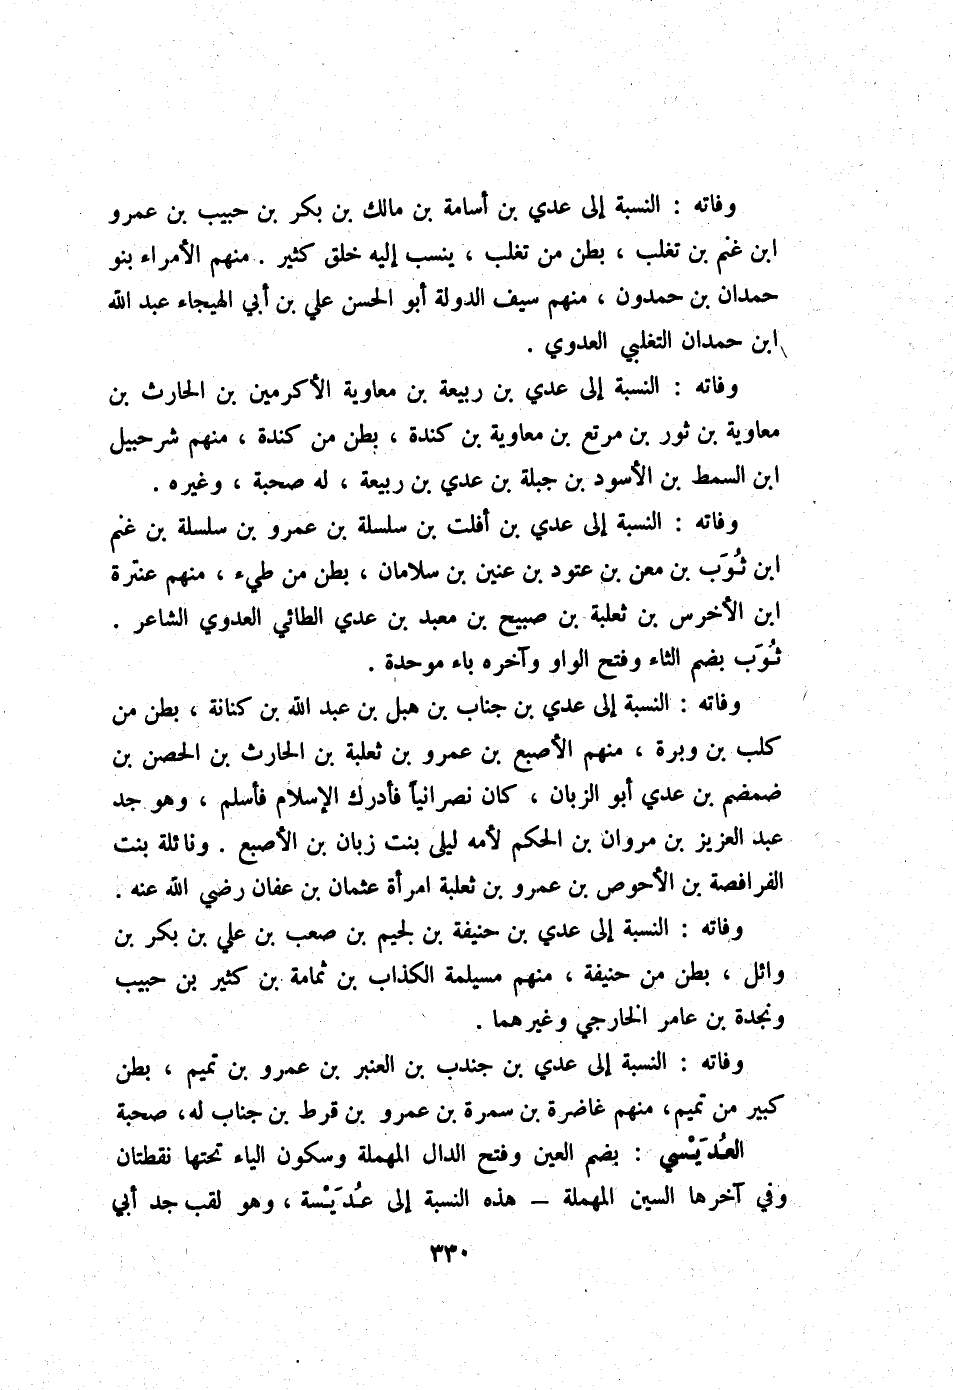 وفاته : النسبة إلى عدي بن أسامة بن مالك بن بكر بن حبيب بن عمرو
ابن غنم بن تغلب ، بطن من تغلب ، ينسب إليه خلق كثير . منهم الأمراء بنو
حمدان بن حمدون ، منهم سيف الدولة أبو الحسن علي بن أبي الهيجاء عبد الله
ابن حمدان التغلبي العدوي .
وفاته : النسبة إلى عدي بن ربيعة بن معاوية الأكرمين بن الحارث بن
معاوية بن ثور بن مرتع بن معاوية بن كندة ، بطن من كندة ، منهم شرحبيل
ابن السمط بن الأسود بن جبلة بن عدي بن ربيعة ، له صحبة ، وغيره .
وفاته : النسبة إلى عدي بن أفلت بن سلسلة بن عمرو بن سلسلة بن غنم
ابن ثُوَب بن معن بن عتود بن عنين بن سلامان ، بطن من طيء ، منهم عنترة
ابن الأخرس بن ثعلبة بن صبيح بن معبد بن عدي الطائي العدوي الشاعر .
ثُوَب بضم الثاء وفتح الواو وآخره باء موحدة .
وفاته : النسبة إلى عدي بن جناب بن هبل بن عبد الله بن كنانة ، بطن من
كلب بن وبرة ، منهم الأصبع بن عمرو بن ثعلبة بن الحارث بن الحصن بن
ضمضم بن عدي أبو الزبان ، كان نصرانياً فأدرك الإسلام فأسلم ، وهو جد
عبد العزيز بن مروان بن الحكم لأمه ليلى بنت زبان بن الأصبع . ونائلة بنت
الفرافصة بن الأحوص بن عمرو بن ثعلبة امرأة عثمان بن عفان رضي الله عنه .
وفاته : النسبة إلى عدي بن حنيفة بن لجيم بن صعب بن علي بن بكر بن
وائل ، بطن من حنيفة ، منهم مسيلمة الكذاب بن ثمامة بن كثير بن حبيب
ونجدة بن عامر الخارجي وغيرهما .
وفاته : النسبة إلى عدي بن جندب بن العنبر بن عمرو بن تميم ، بطن
كبير من تميم، منهم غاضرة بن سمرة بن عمرو بن قرط بن جناب له، صحبة
العُدَيْسي : بضم العين وفتح الدال المهملة وسكون الياء تحتها نقطتان
وفي آخرها السين المهملة – هذه النسبة إلى عُدَيْسة ، وهو لقب جد أبي
٣٣٠